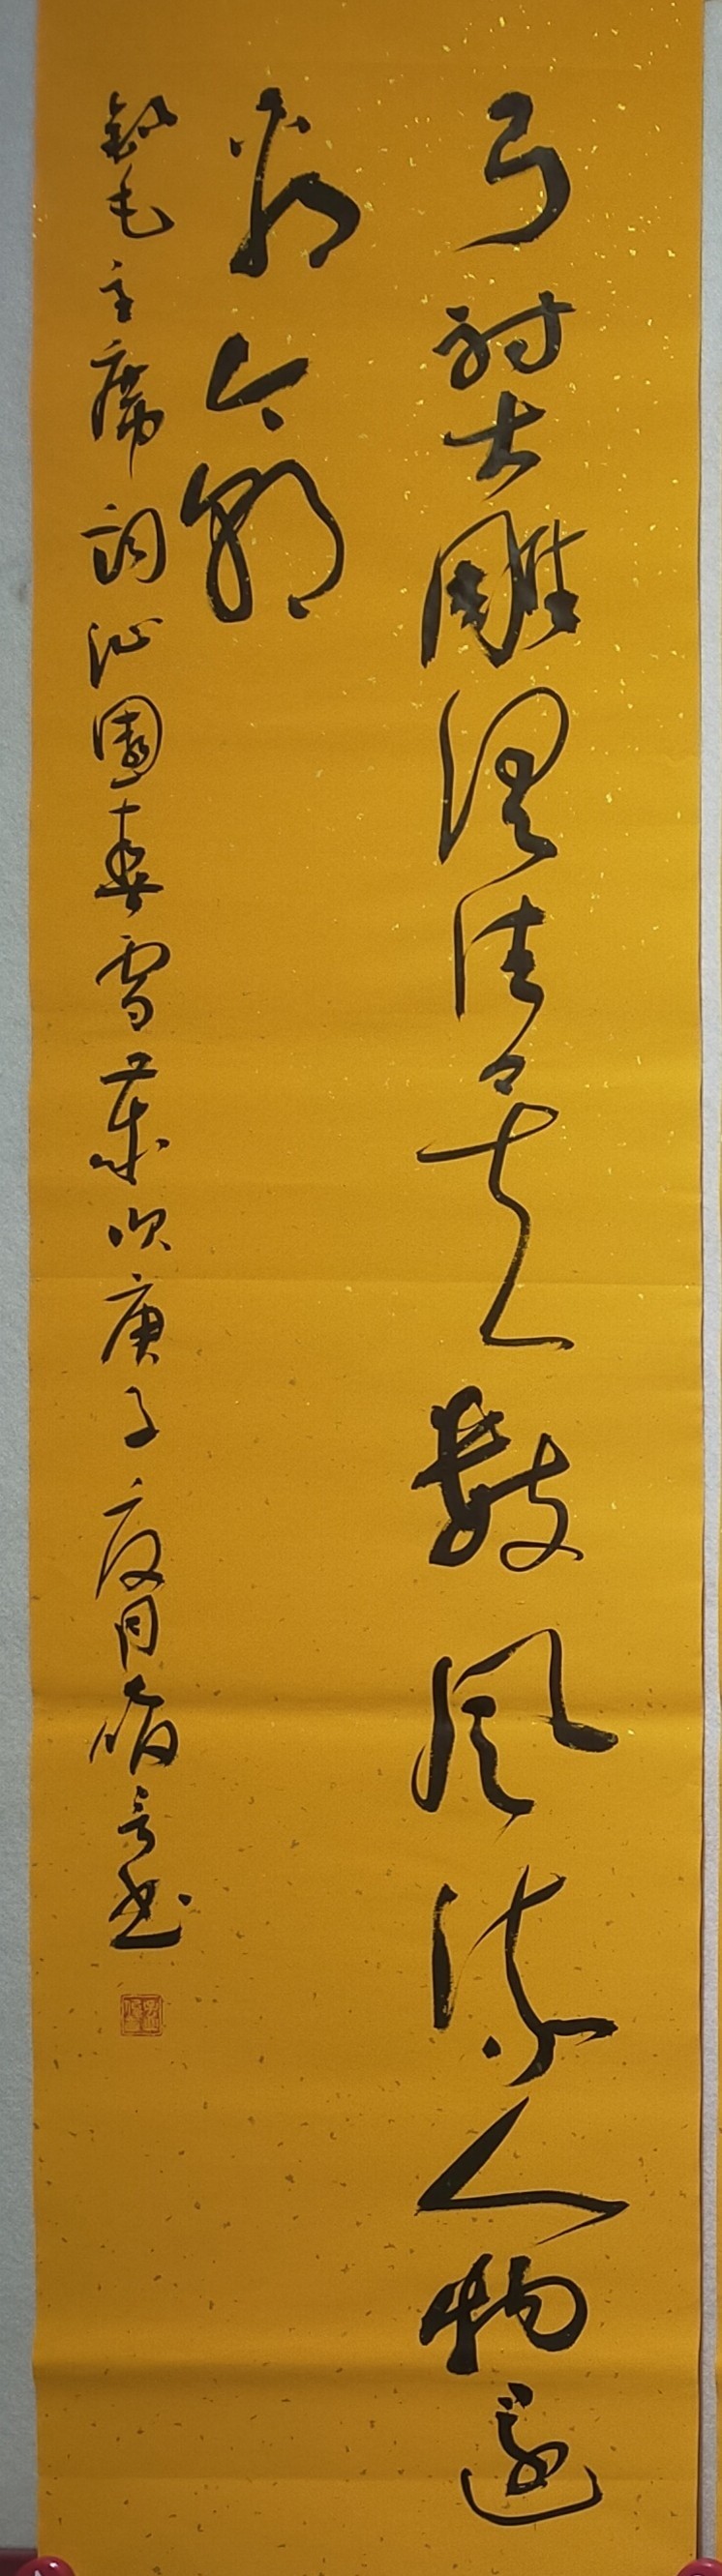 弓射大雕俱往矣数风流人物还
看今朝
录毛主席词沁园春雪岁次庚子夏月书